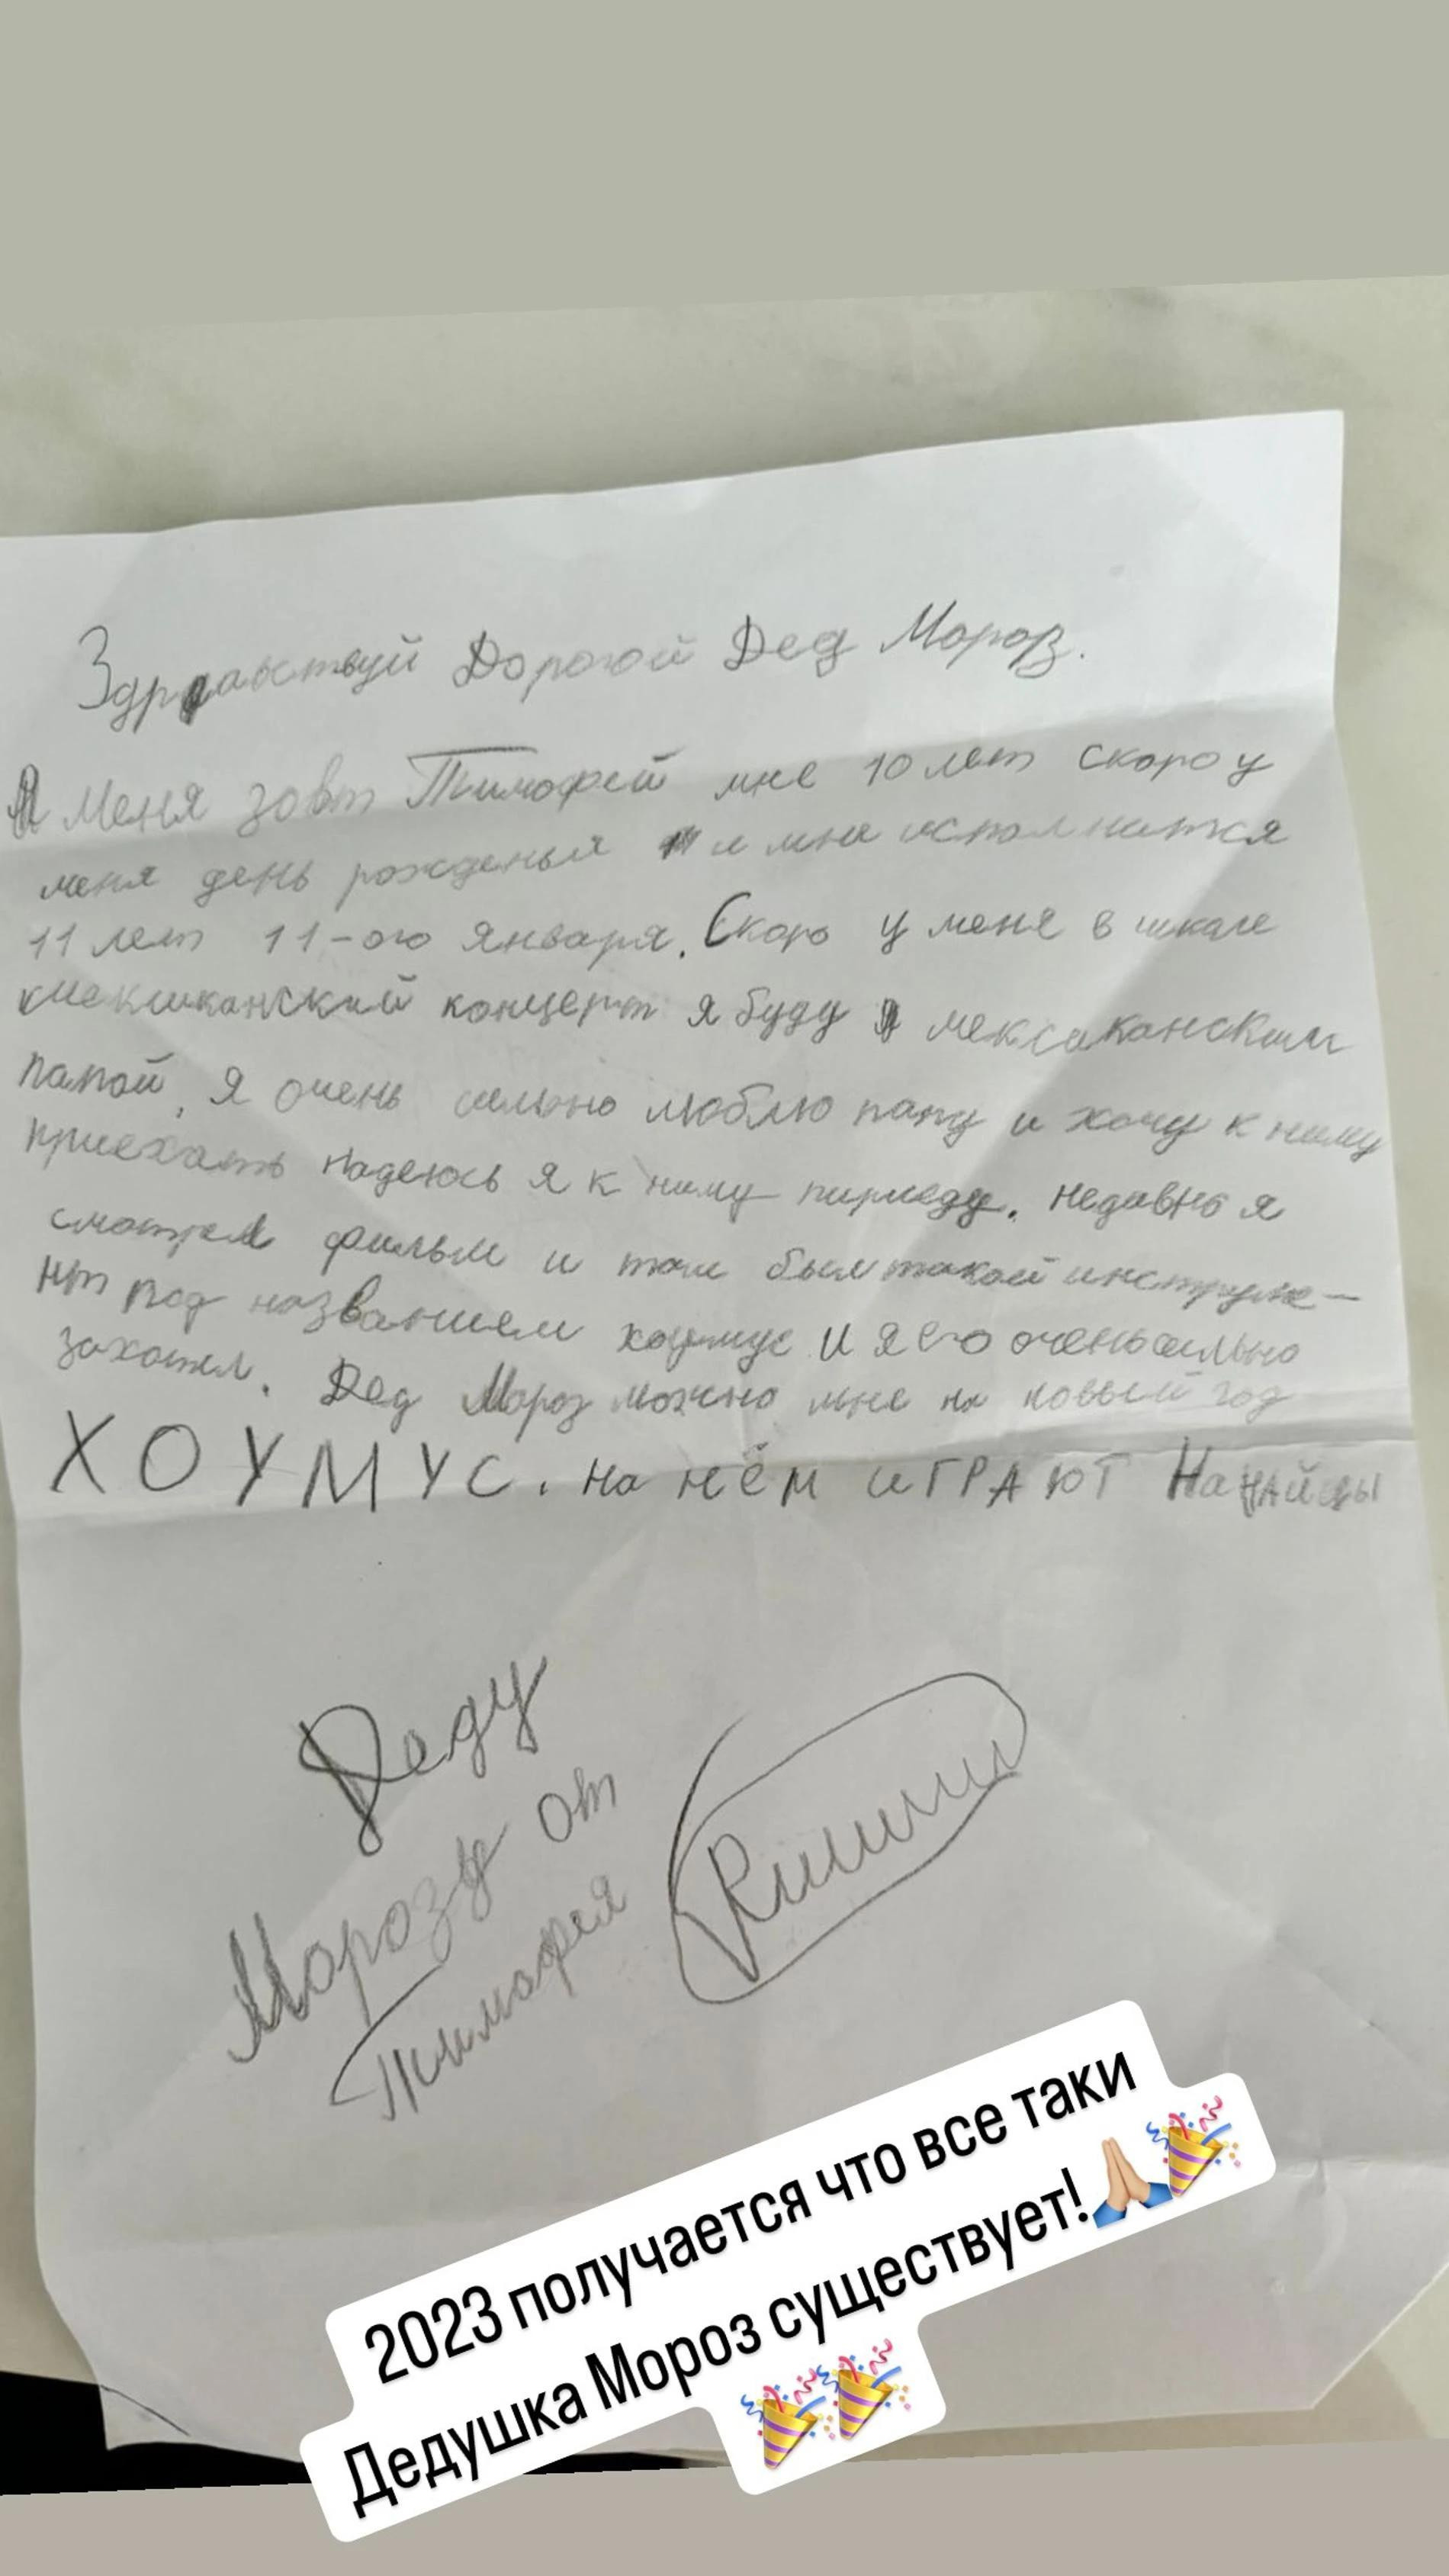 Здраавствуй Дорогой Дед Мороз.
Я Меня зовт Тимофей мне 10 лет скоро у
меня день рожденья и мне исполнится
11 лет 11-ого января. Скоро у меня в школе
концерт я буду мексиканским
папой, я очень сильно люблю папу и хочу к нему
приехать надеюсь я к нему приеду. недавно я
смотрел фильм и там был такой инструме-
нт под названием хоумус и я его очень сильно
захотел. Дед Мороз можно мне на новый год
ХОУМУС. на нём ИГРАЮТ Нанайцы
Деду
Морозу от
Тимофея
2023 получается что все таки
Дедушка Мороз существует!🙏🏼🎉
🎉🎉